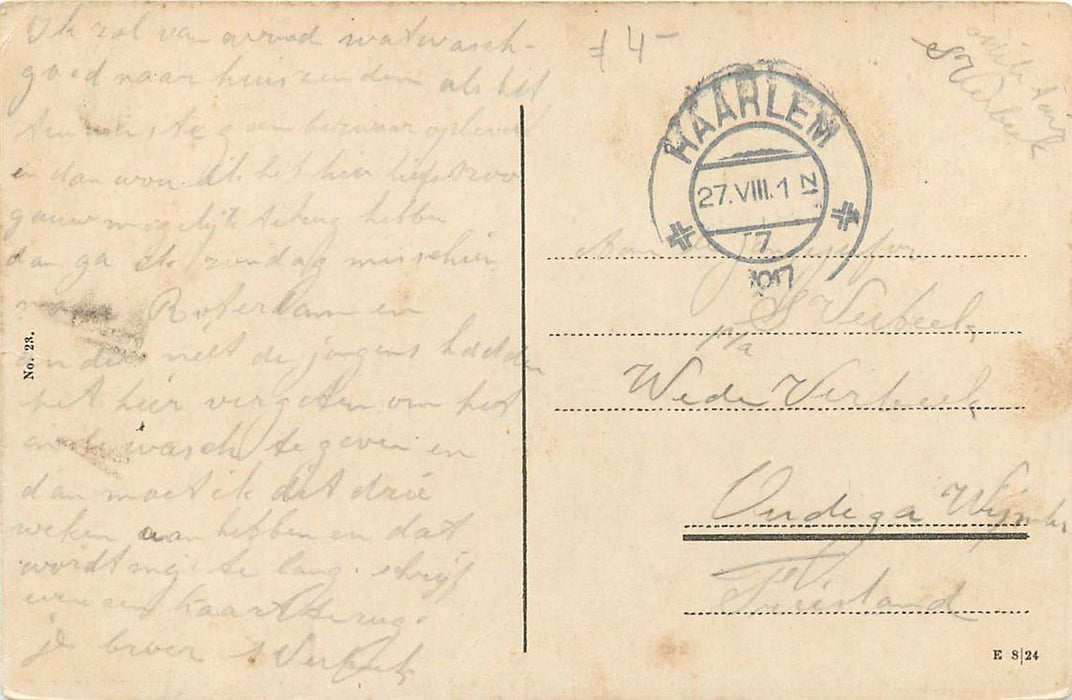 Ik zal van avond wat wasch-
goed naar huis zenden als het
en dan wou ik het hier liefst zoo
gauw mogelijk terug hebben
dan ga ik zondag misschien
naar Roterdam en
anders net de jongens hadden
het hier vergeten om het
in de wasch te geven en
dan moet ik dat drie
weken aan hebben en dat
wordt mij te lang. schrijf
even een kaart terug.
je broer S Verbeek
f 4-
militair
S Verbeek
HAARLEM
27.VIII.1
Aan Jongejufvr
S Verbeek
p/a
Wede Verbeek
Oudega Wijmbr
Friesland
No. 23.
E 8/24